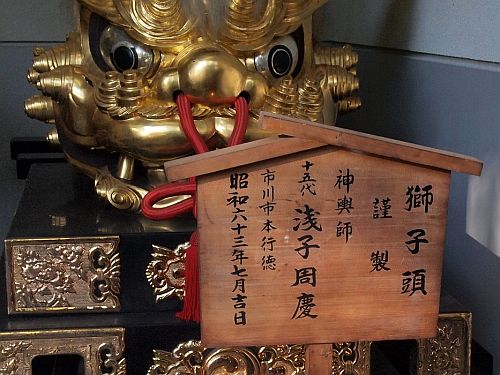 獅子頭
謹製
神輿師
十五代 浅子周慶
市川市本行徳
昭和六十三年七月吉日